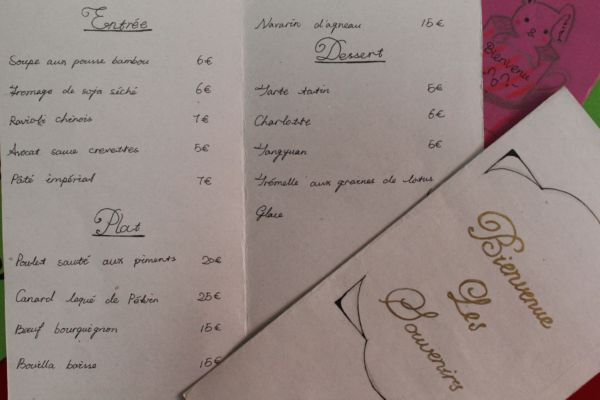 Entrée
Soupe aux pousse bambou 6€
Fromage de soja séché 6€
Ravioli chinois 7€
Avocat sauce crevettes 5€
Pâté impérial 7€
Plat
Poulet sauté aux piments 20€
Canard laqué de Pékin 25€
Bœuf bourguignon 15€
Bouilla baisse 15€
Navarin d'agneau 15€
Dessert
Tarte tatin 5€
Charlotte 6€
Tangyuan 6€
Trémelle aux graines de lotus
Glace
Bienvenue
Bienvenue
Les
Souvenirs